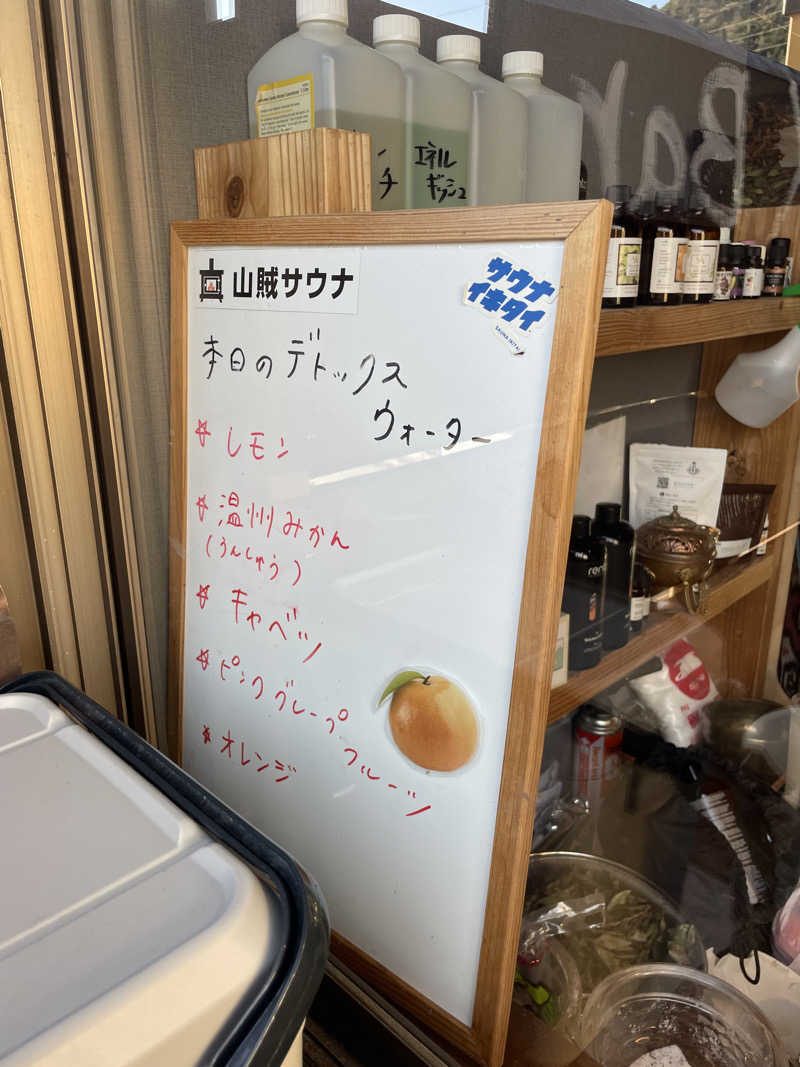 Bar
エネル
ギッシュ
チ
山賊サウナ
サウナ
イキタイ
SAUNA IKITAI
本日のデトックス
ウォーター
☆ レモン
☆ 温州みかん
(うんしゅう)
☆ キャベツ
☆ ピンクグレープ
フルーツ
☆ オレンジ